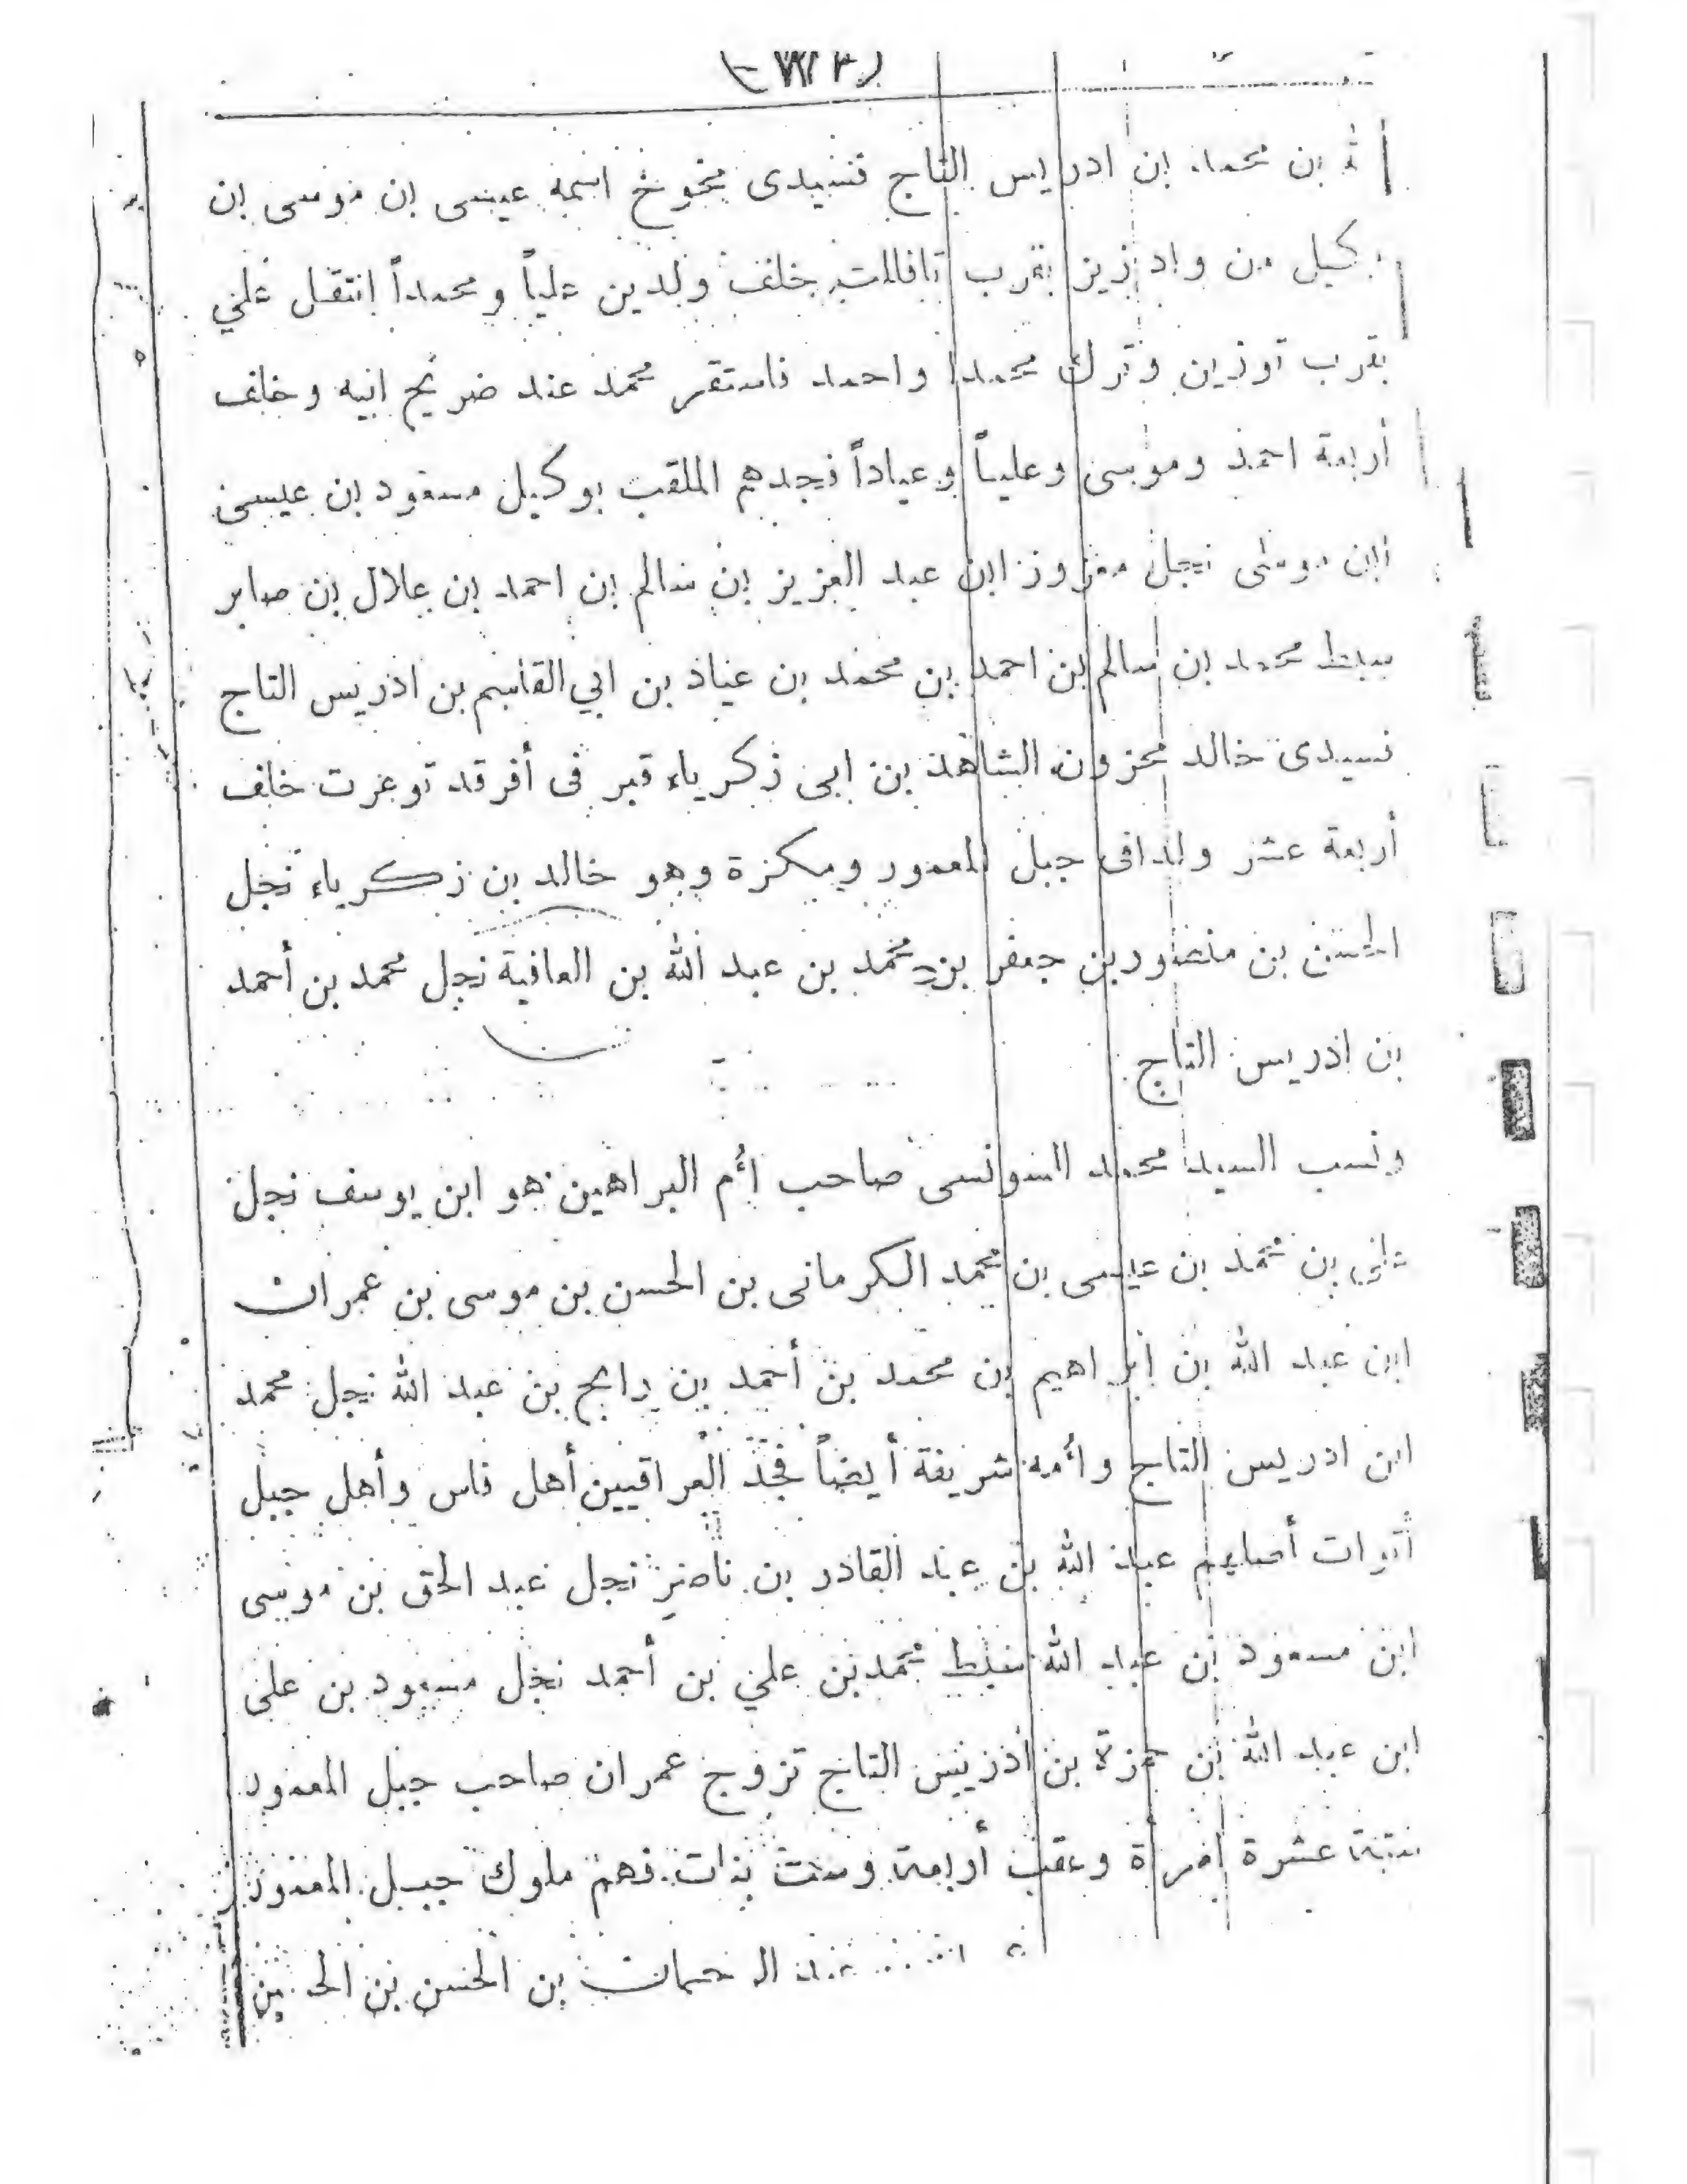 بن محمد بن ادريس التاج فسيدى مخوخ اسمه عيسى بن موسى بن
كيل من واد زيز بقرب تافلالت خلف ولدين علياً ومحمداً انتقل علي
بقرب توزين وترك محمدا واحمد فاستقر محمد عند ضريح ابيه وخلف
أربعة احمد وموسى وعلياً وعياداً فجدهم الملقب بوكيل مسعود بن عيسى
ابن موسى نجل معزوز ابن عبد العزيز بن سالم بن احمد بن علال بن صابر
سبط محمد بن سالم بن احمد بن محمد بن عياد بن ابي القاسم بن ادريس التاج
فسيدى خالد محزون الشاهد بن ابى زكرياء قبر فى أفرقد توعزت خلف
أربعة عشر ولدا فى جبل المعمور ومكزة وهو خالد بن زكرياء نجل
الحسن بن منصور بن جعفر بن محمد بن عبد الله بن العافية نجل محمد بن أحمد
بن ادريس التاج
ونسب السيد محمد السونسى صاحب أم البراهين هو ابن يوسف نجل
علي بن محمد بن عيسى بن محمد الكرمانى بن الحسن بن موسى بن عمران
ابن عبد الله بن ابراهيم بن محمد بن أحمد بن رابح بن عبد الله نجل محمد
ابن ادريس التاج وأمه شريفة أيضاً فجد العراقيين أهل فاس وأهل جبل
أتوات أصلهم عبد الله بن عبد القادر بن ناصر نجل عبد الحق بن موسى
ابن مسعود بن عبد الله سبط محمد بن علي بن أحمد نجل مسعود بن على
ابن عبد الله بن حمزة بن ادريس التاج تزوج عمران صاحب جبل المعمور
ستة عشرة امرأة وعقب أربعة وست بنات فهم ملوك جبل المعمور
عبد الرحمان بن الحسن بن الحسين